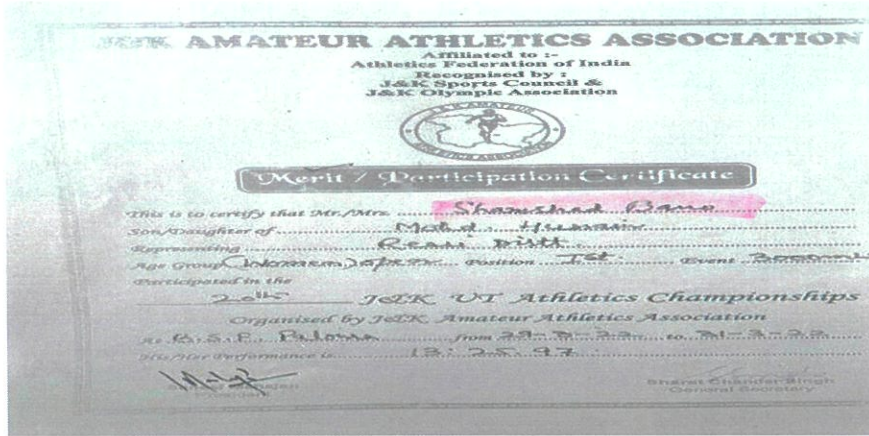 J&K AMATEUR ATHLETICS ASSOCIATION
Affiliated to :-
Athletics Federation of India
Recognised by :
J&K Sports Council &
J&K Olympic Association
J&K AMATEUR
Merit / Participation Certificate
This is to certify that Mr./Mrs. Shamshad Bano
Son/Daughter of Mohd.
Representing Reasi Distt.
Age Group (Women) open Position Ist. Event
Participated in the
20th J&K UT Athletics Championships
Organised by J&K Amateur Athletics Association
At from to 31-3-22
His/Her Performance is 13:25.97
President
Sharat Chander Singh
General Secretary